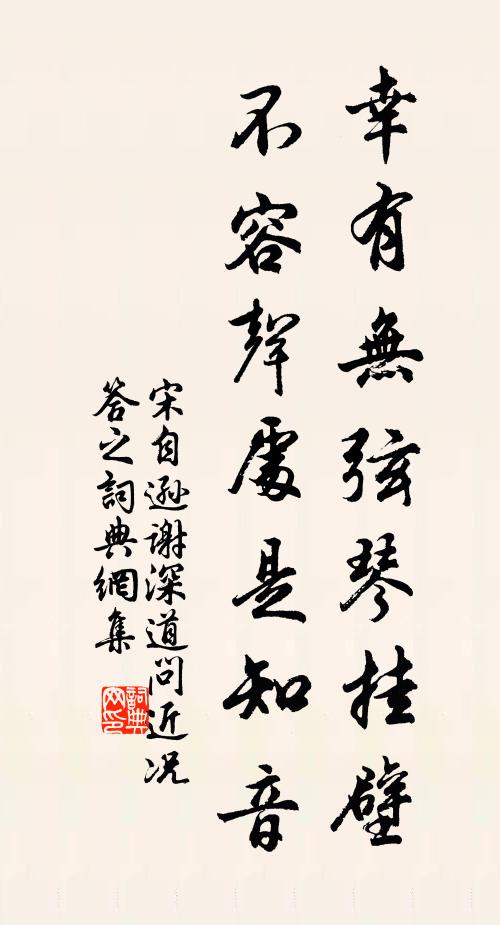 幸有無弦琴挂壁
不容聲處是知音
宋自遜謝深道問近况
答之詞典網集
詞典
网印